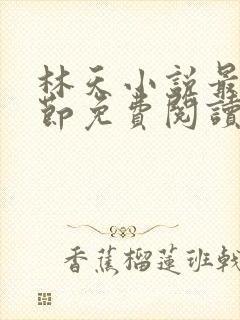 林天小説最
節免費閱讀
香蕉榴蓮班戟